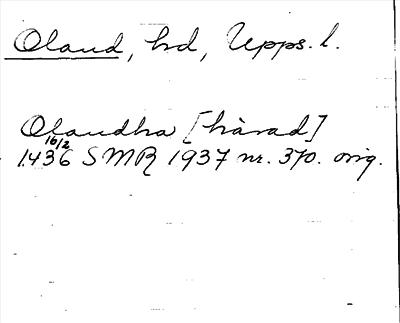 Oland, hd, Upps. l.
Olandha [härad]
16/2
1436 SMR 1937 nr. 370. orig.